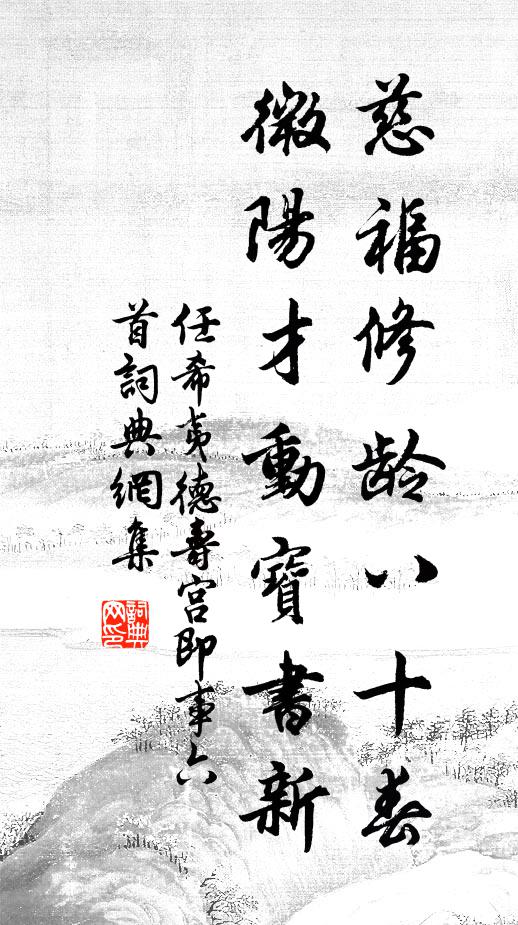 慈福修龄八十春
微陽才動寶書新
任希夷德壽宮即事六
首詞典網集
詞典
网印